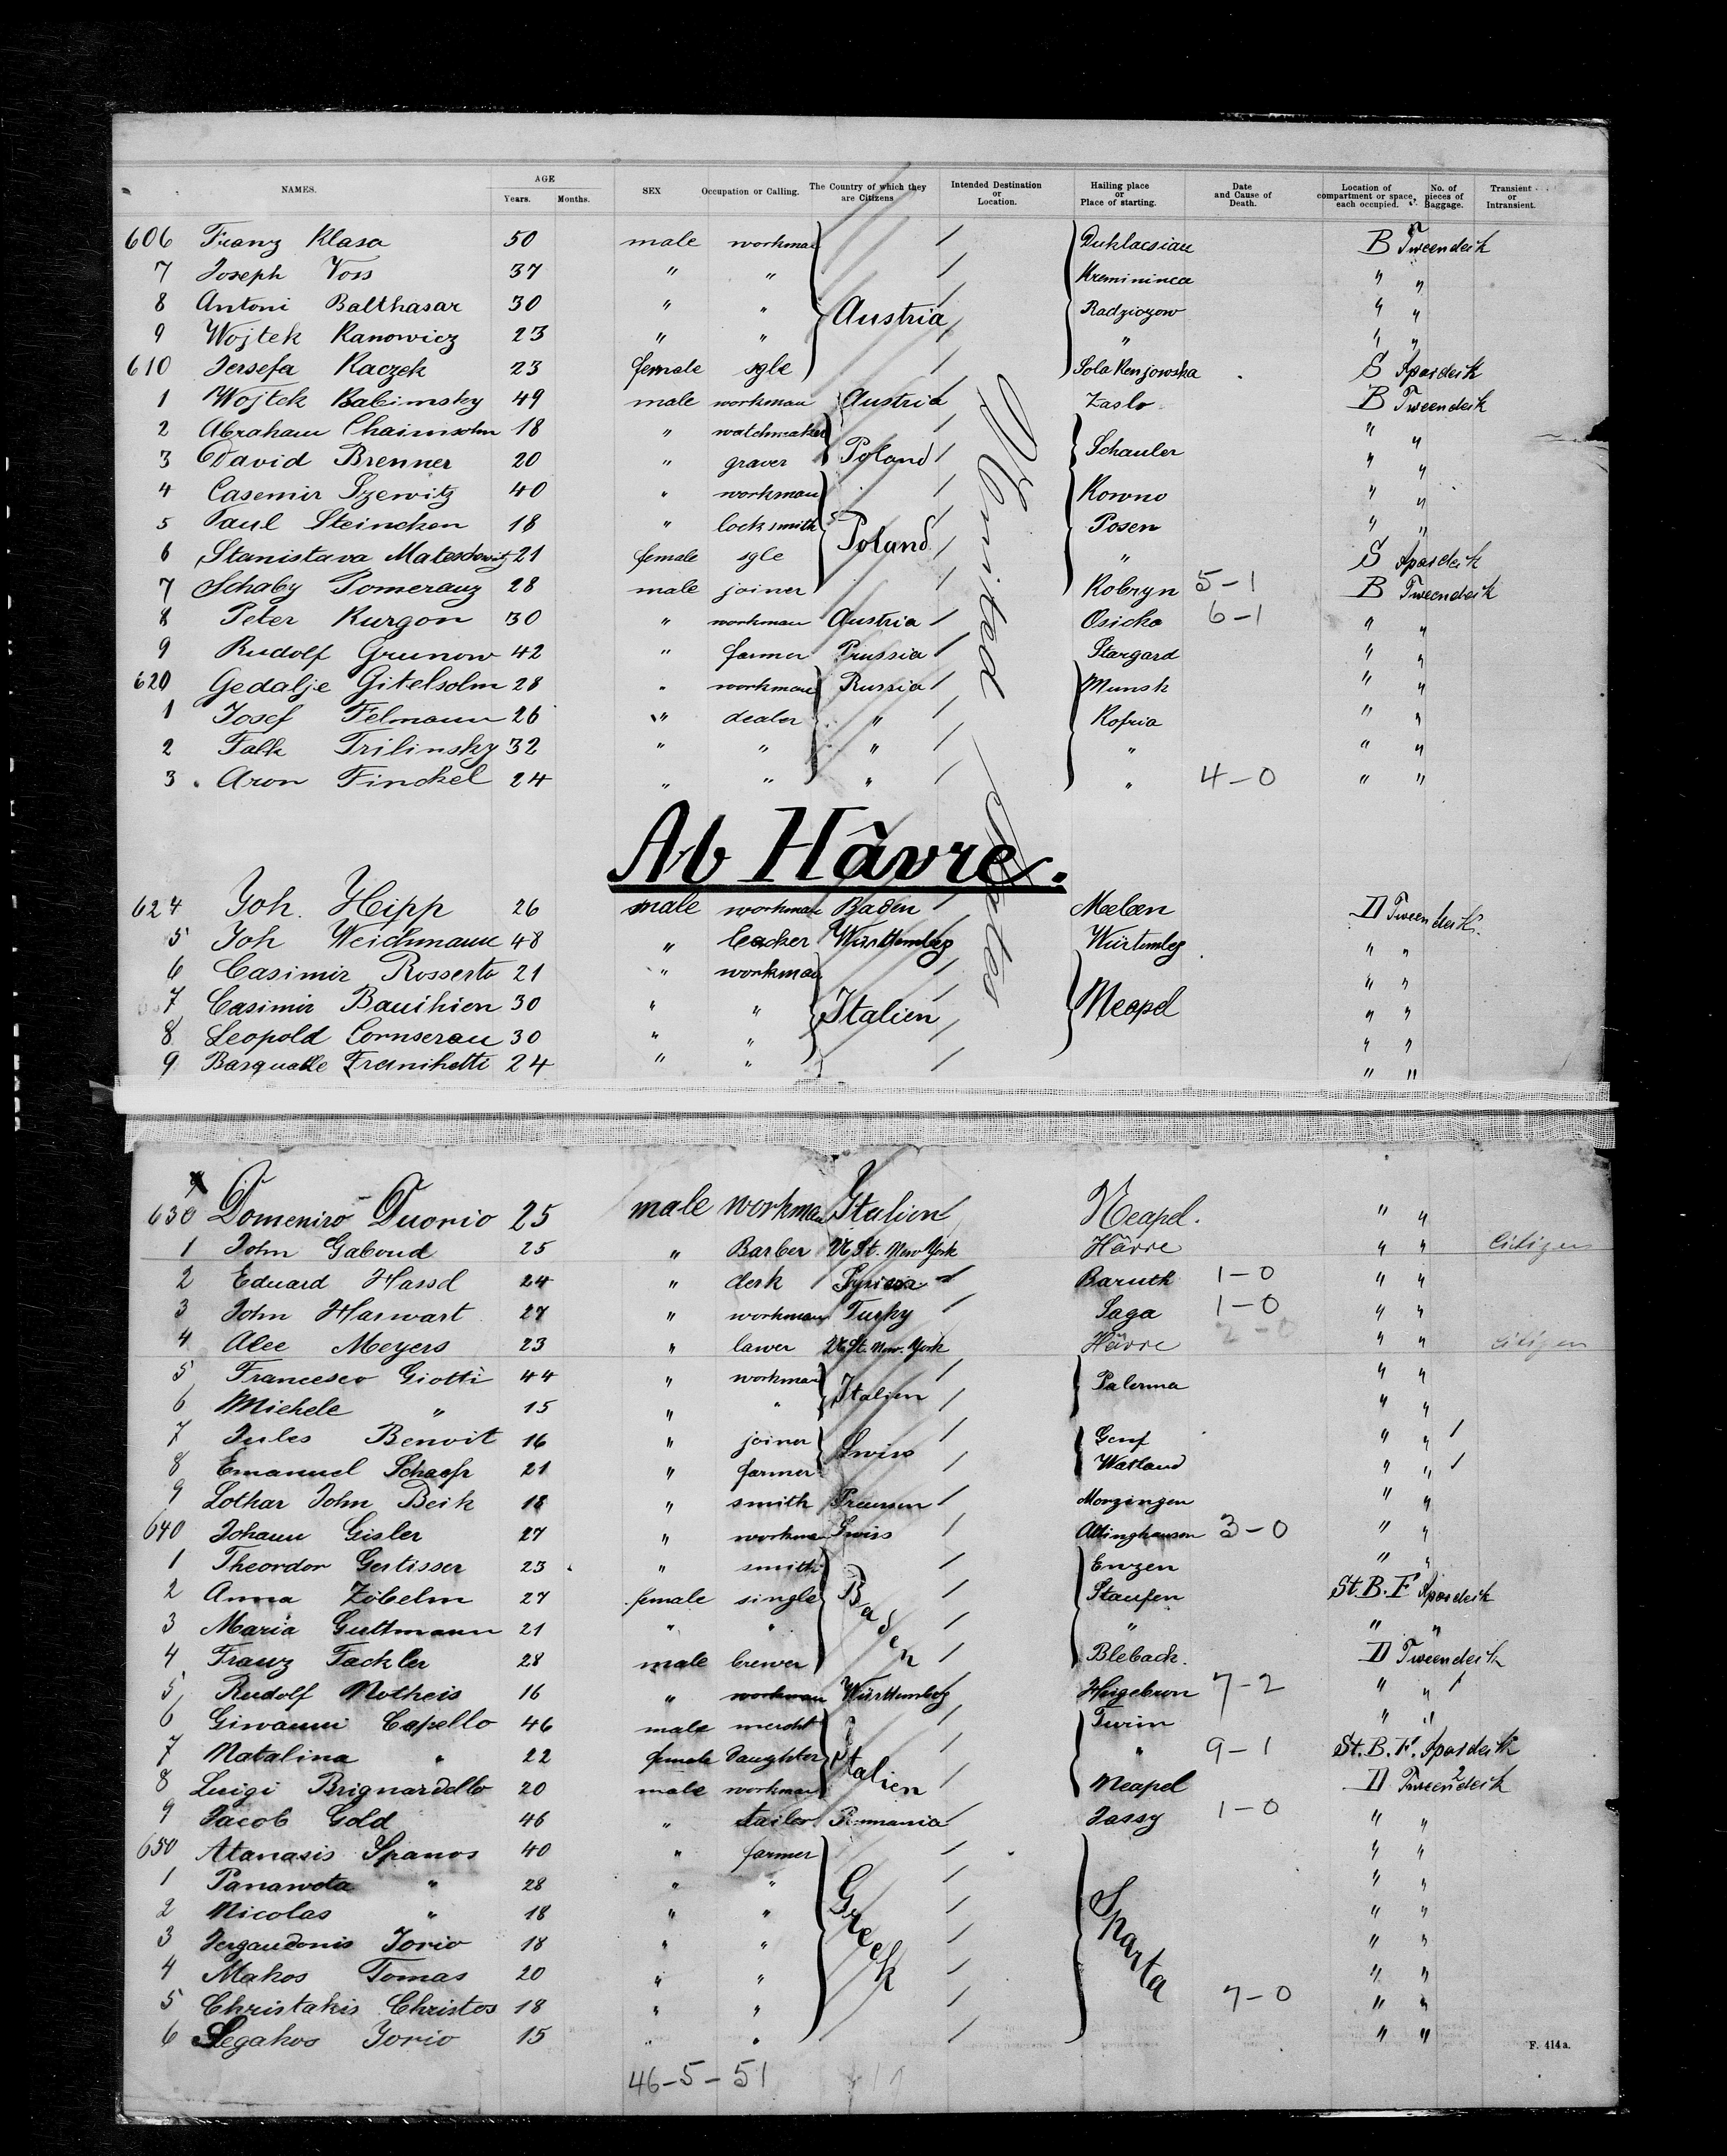 NAMES. AGE Years. Months. SEX Occupation or Calling. The Country of which they are Citizens Intended Destination or Location. Hailing place or Place of starting. Date and Cause of Death. Location of compartment or space, each occupied. No. of pieces of Baggage. Transient or Intransient.
606 Franz Klasa 50 male workman Duklacsiau B Tweendeik
7 Joseph Voss 37 " " Kremininca " "
8 Antoni Balthasar 30 " " Austria Radziozow " "
9 Wojtek Kanowicz 23 " " " " "
610 Jersefa Kaczek 23 female sgle Sola S
1 Wojtek Babimsky 49 male workman Austria Zaslo B Tweendeik
2 Abraham Chaimsolm 18 " watchmaker " "
3 David Brenner 20 " graver Poland Schauler " "
4 Casemir Szewitz 40 " workman Kowno " "
5 Paul Steincken 18 " locksmith Poland Posen " "
6 Stanistava 21 female sgle " S
7 Schaby Pomeranz 28 male joiner Kobryn 5-1 B Tweendeik
8 Peter Kurgon 30 " workman Austria Osicka 6-1 " "
9 Rudolf Grunow 42 " farmer Prussia Stargard " "
620 Gedalje Gitelsolm 28 " workman Russia Munsk " "
1 Josef Felmann 26 " dealer " Kofria " "
2 Falk Trilinsky 32 " " " " " "
3 Aron Finckel 24 " " " " 4-0 " "
United States
Ab Hàvre.
624 Joh. Hipp 26 male workman Baden D Tweendeik.
5 Joh Weichmann 48 " Württemberg Würtembg " "
6 Casimir Rosserto 21 " workman " "
7 Casimir Bauihien 30 " " Italien Neapel " "
8 Leopold Cornserau 30 " " " "
9 Basqualle Franihetti 24 " " " "
630 Domeniro Duorio 25 male workman Italien Neapel. " "
1 John Gaboud 25 " Barber U St. New York Hâvre " " Citizen
2 Eduard Hassd 24 " clerk Baruth 1-0 " "
3 John Harwart 27 " workman Turky Saga 1-0 " "
4 Alec Meyers 23 " lawer U St. New. York Hävre 2-0 " " citizen
5 Francesco Giotti 44 " workman Italien Palerma " "
6 Michele " 15 " " " "
7 Jules Benoit 16 " joiner Swiss Genf " " 1
8 Emanuel Schaefr 21 " farmer Watland " " 1
9 Lothar John Beik 18 " smith Preussen Monzingen " "
640 Johann Gisler 27 " workman Swiss Attinghausen 3-0 " "
1 Theordor Gertisser 23 " smith Enzen " "
2 Anna Zöbelm 27 female single Baden Staufen St. B. F
3 Maria Guttmann 21 " " " " "
4 Franz Fackler 28 male brewer Blebach. D Tweendeik
5 Rudolf Notheis 16 " workman Württemberg Heigebronn 7-2 " " 1
6 Giwanni Capello 46 male mercht Turin " "
7 Natalina " 22 female Daughter Italien " 9-1 St. B. F.
8 Luigi Brignardello 20 male workman Neapel D Tweendeik 2
9 Jacob Gold 46 " tailor Rumania Jassy 1-0 " "
650 Atanasis Spanos 40 " farmer " "
1 Panawota " 28 " " " "
2 Nicolas " 18 " " Greek Sparta " "
3 Jergaudonis Jorio 18 " " " "
4 Makos Tomas 20 " " " "
5 Christakis Christos 18 " " 7-0 " "
6 Segakos Jorio 15 " " " "
F. 414a.
46-5-51